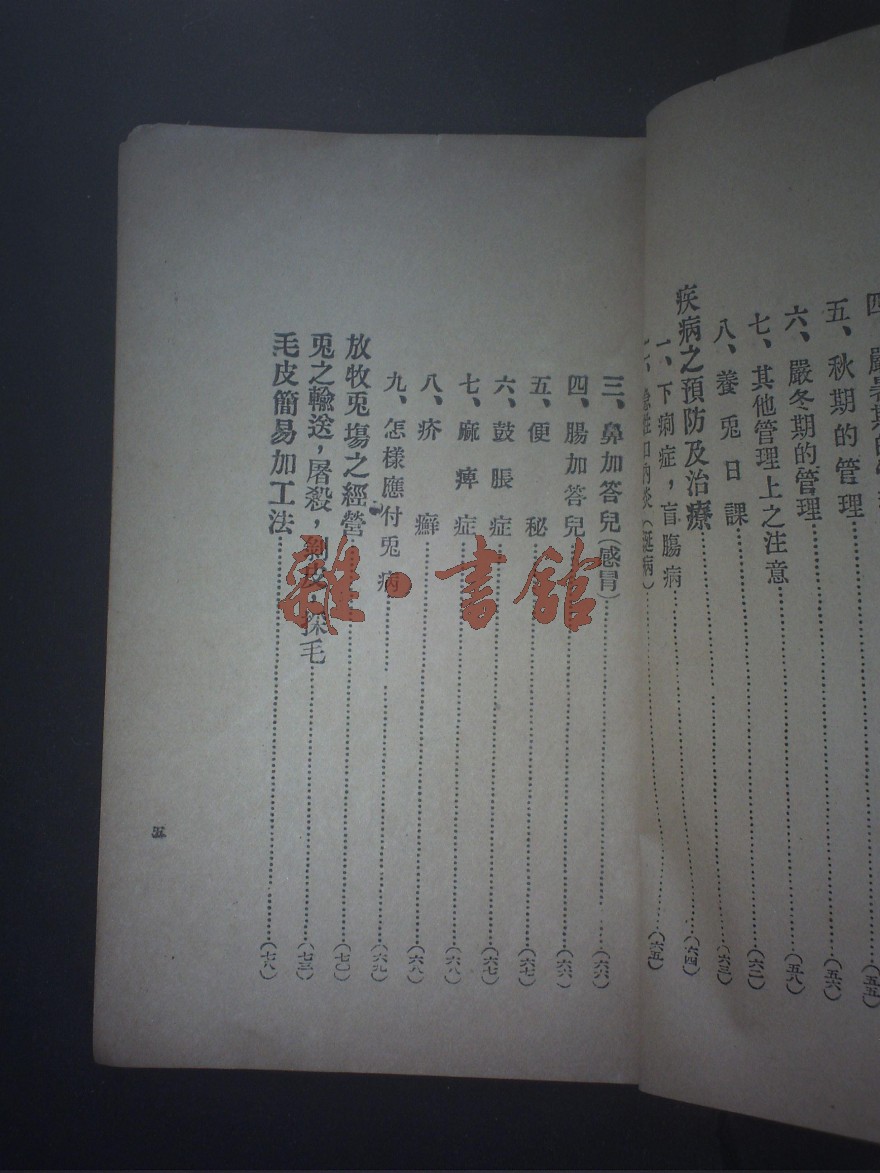 四、嚴暑期的管理……(五五)
五、秋期的管理……(五六)
六、嚴冬期的管理……(五八)
七、其他管理上之注意……(六二)
八、養兎日課……(六三)
疾病之預防及治療……(六四)
一、下痢症，盲腸病
二、急性口內炎(涎病)……(六五)
三、鼻加答兒(感冒)……(六六)
四、腸加答兒……(六六)
五、便秘……(六七)
六、鼓脹症……(六七)
七、痲痺症……(六八)
八、疥癬……(六八)
九、怎樣應付兎病……(六九)
放牧兎塲之經營……(七〇)
兎之輸送，屠殺，剝皮，採毛……(七三)
毛皮簡易加工法……(七八)
五
雜·書館